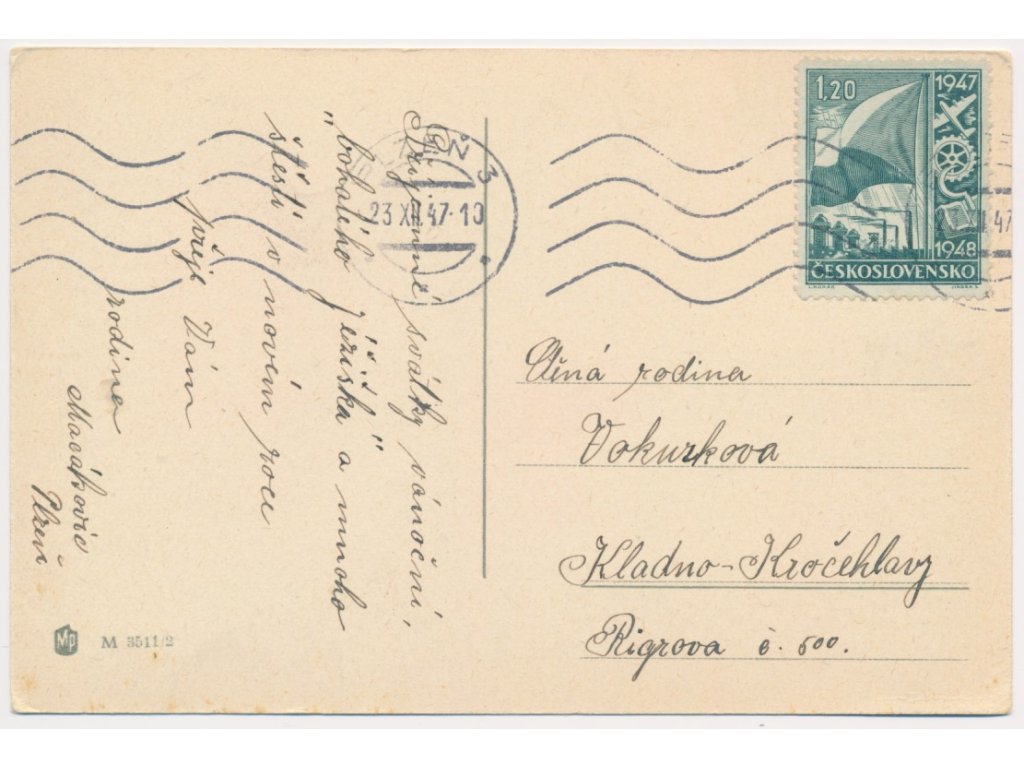 Příjemné svátky vánoční,
"bohatého ježíška" a mnoho
štěstí v novém roce
přeje Vám
rodina
Plzeň
3
23 XII 47-10
1,20
1947
1948
ČESKOSLOVENSKO
47
Ctěná rodina
Vokurková
Kladno-Kročehlavy
Rigrova č. 500.
Mp M 3511/2